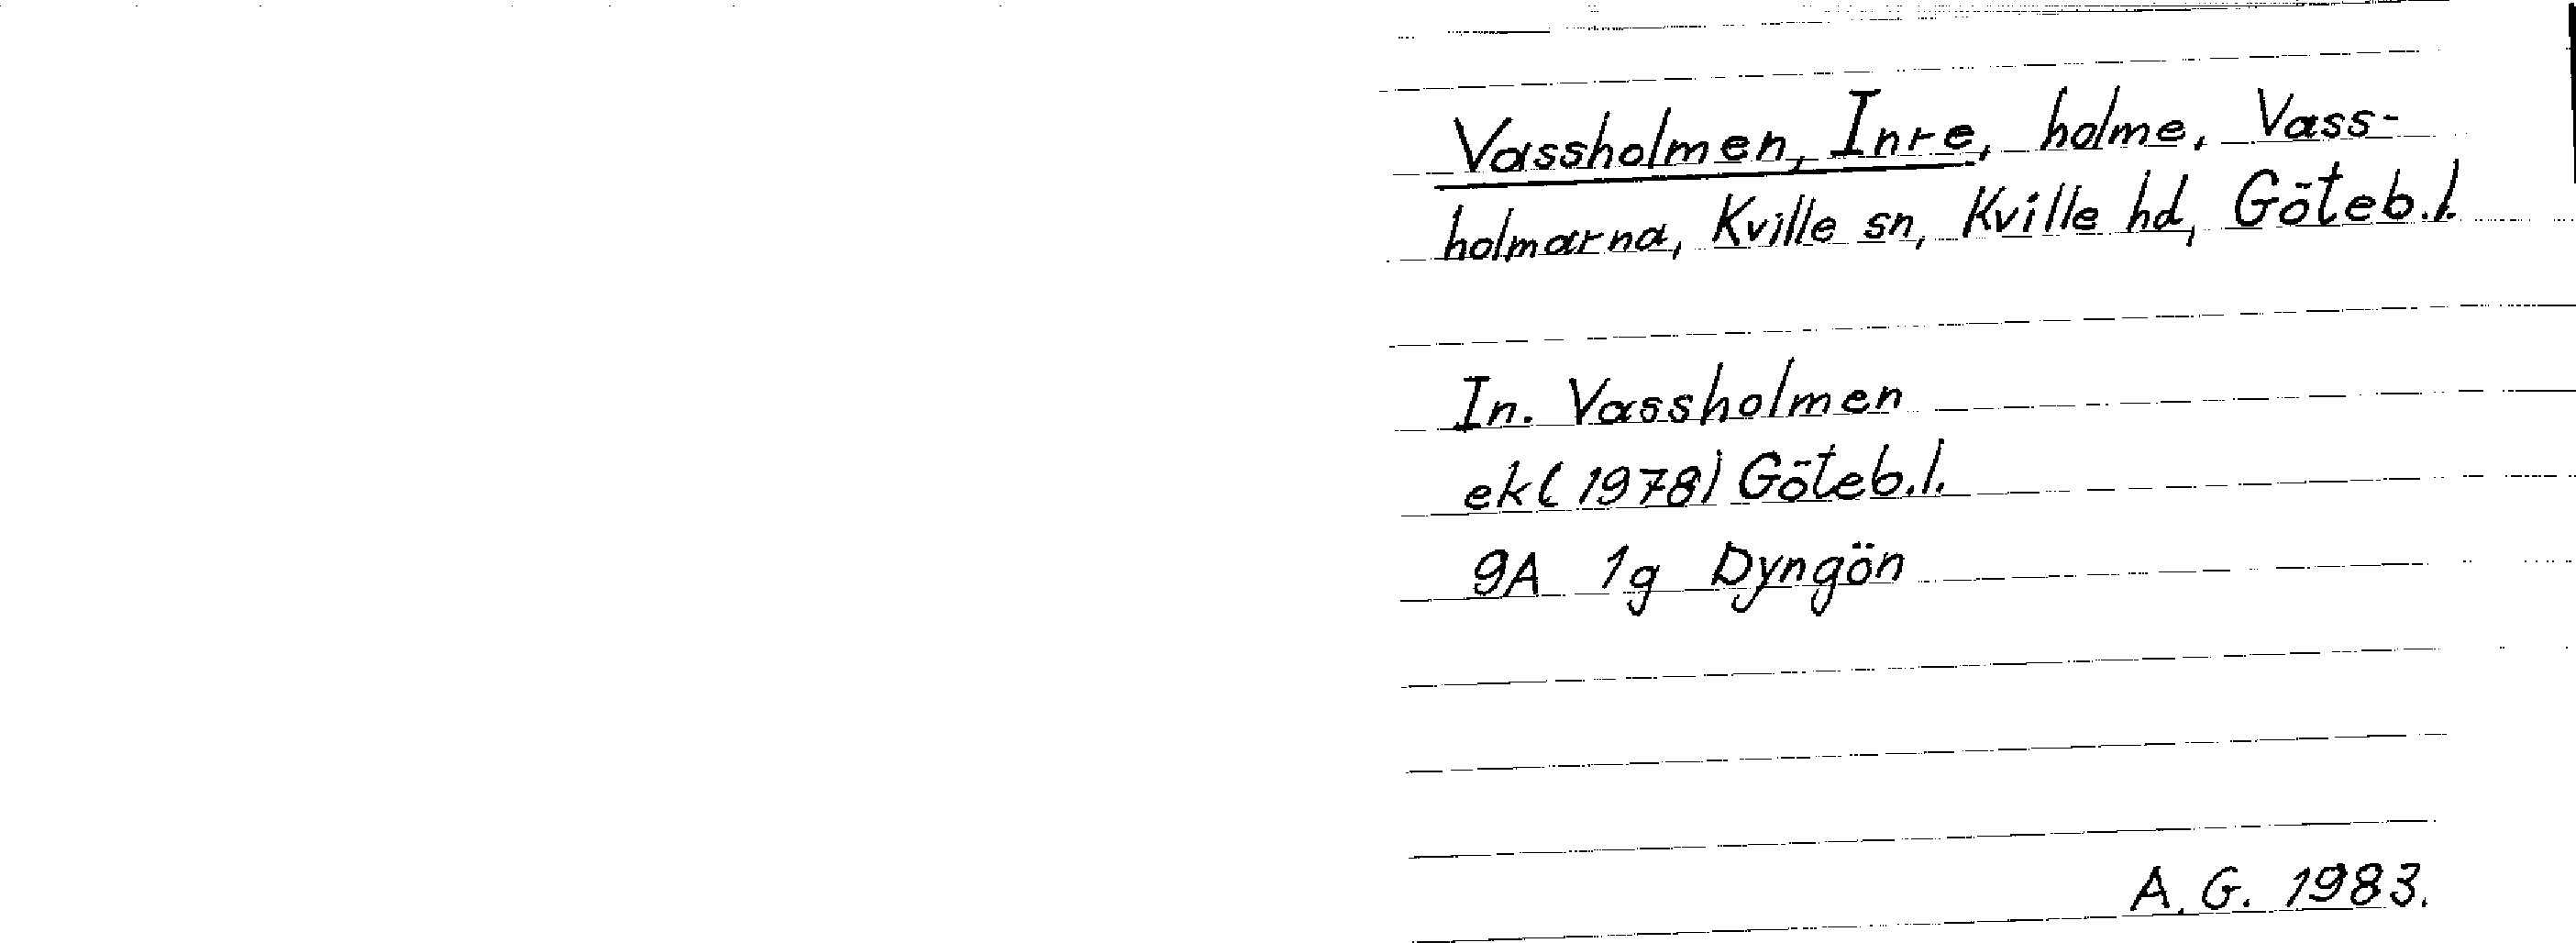 Vassholmen, Inre, holme, Vass-
holmarna, Kville sn, Kville hd, Göteb.l.
In. Vassholmen
ekl(1978) Göteb.l.
9A 1g Dyngön
A.G. 1983.